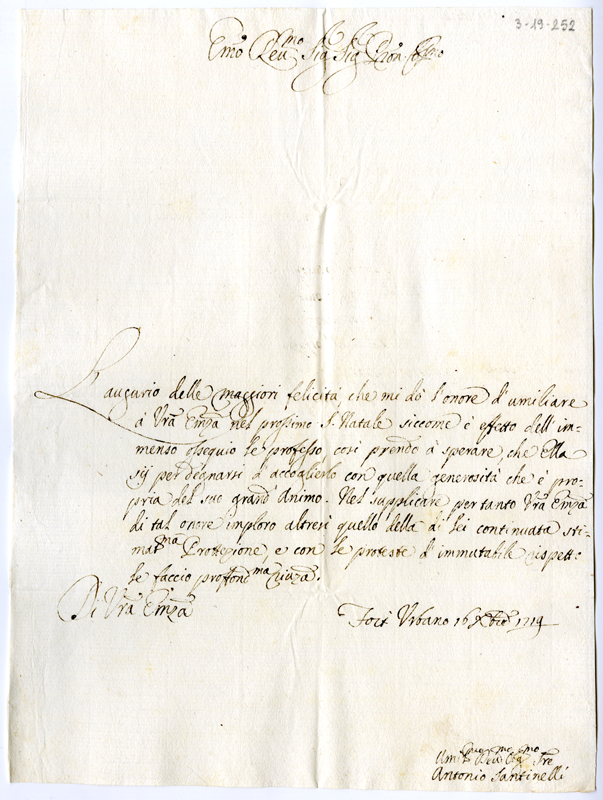 3-19-252
Emo Revmo Sig Sig Pron Colmo
L'augurio delle maggiori felicità che mi dò l'onore d'umiliare
à Vrã Emzã nel prossimo S. Natale siccome è effetto dell'im-
menso ossequio le professo, così prendo à sperare, che Ella
sij per degnarsi d'accoglierlo con quella generosità che è pro-
pria del suo grand'Animo. Nel supplicare per tanto Vrã Emzã
di tal onore imploro altresì quello della di lei continuata sti-
matma Protezione, e con le proteste d'immutabile rispetto
le faccio profondma riverza.
Di Vrã Emzã
Fort Urbano 16 Xbre 1719
Antonio Santinelli